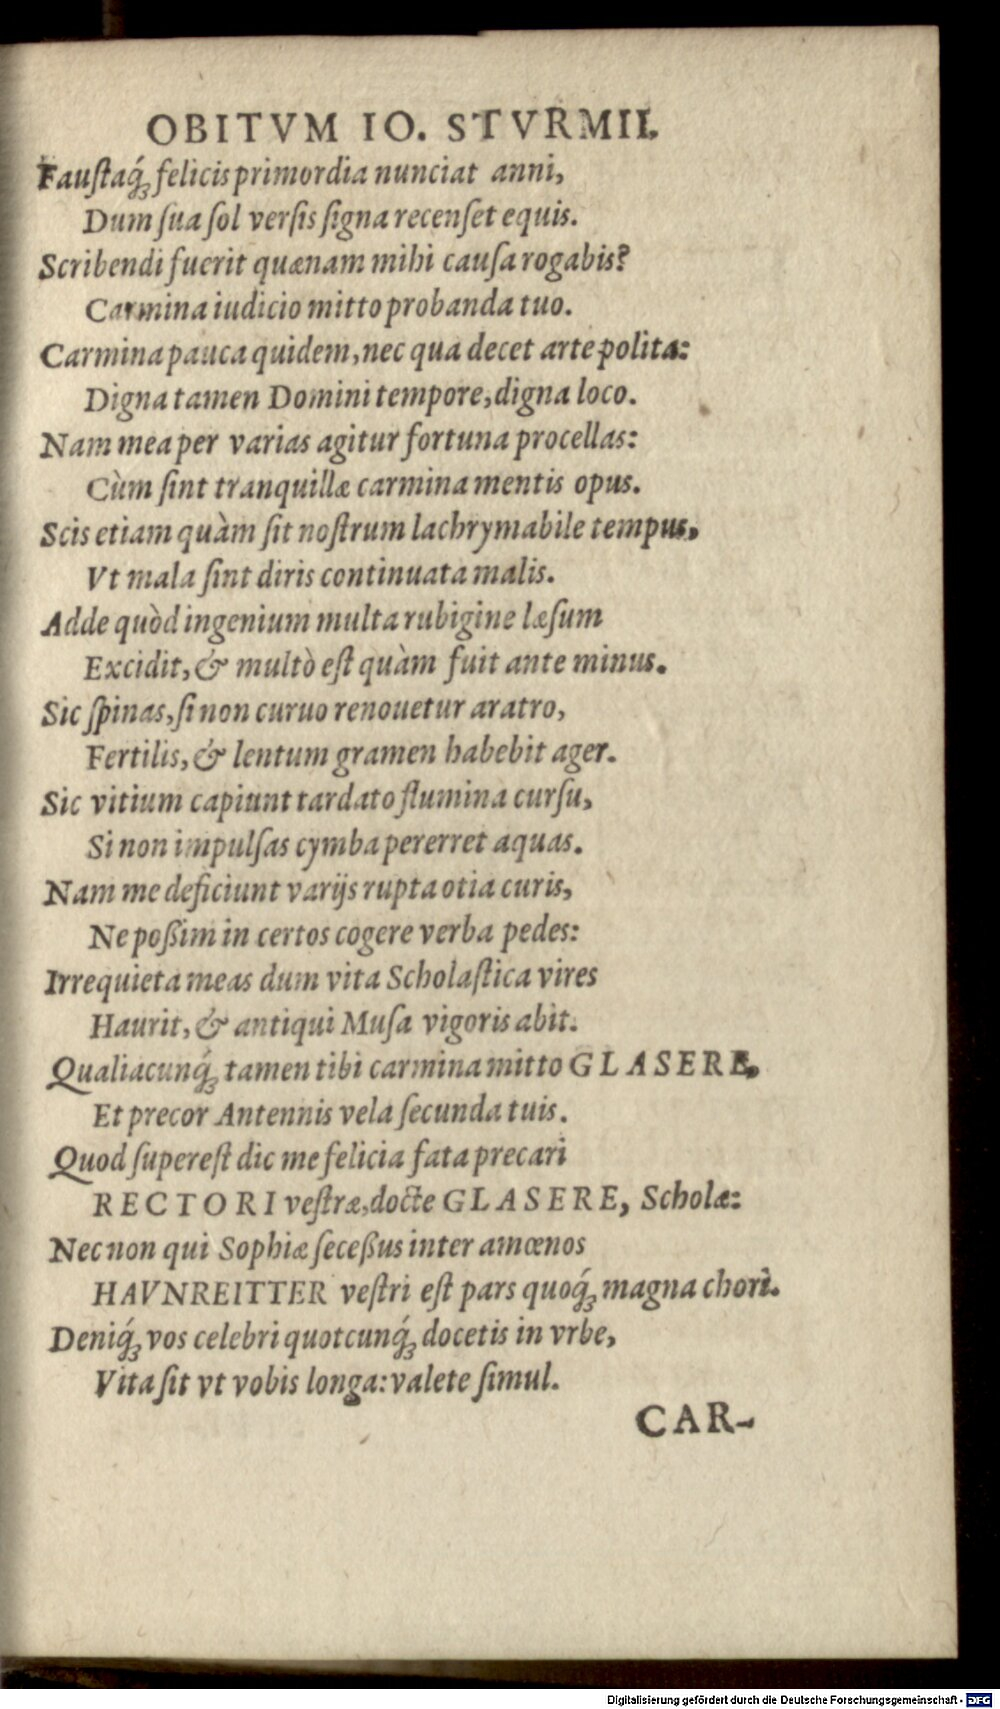 OBITVM IO. STVRMII.
Faustaq́ꝫ felicis primordia nunciat anni,
Dum sua sol versis signa recenset equis.
Scribendi fuerit quænam mihi causa rogabis?
Carmina iudicio mitto probanda tuo.
Carmina pauca quidem, nec qua decet arte polita:
Digna tamen Domini tempore, digna loco.
Nam mea per varias agitur fortuna procellas:
Cùm sint tranquillæ carmina mentis opus.
Scis etiam quàm sit nostrum lachrymabile tempus,
Vt mala sint diris continuata malis.
Adde quòd ingenium multa rubigine læsum
Excidit, & multò est quàm fuit ante minus.
Sic spinas, si non curuo renouetur aratro,
Fertilis, & lentum gramen habebit ager.
Sic vitium capiunt tardato flumina cursu,
Si non impulsas cymba pererret aquas.
Nam me deficiunt varijs rupta otia curis,
Ne poßim in certos cogere verba pedes:
Irrequieta meas dum vita Scholastica vires
Haurit, & antiqui Musa vigoris abit.
Qualiacunq́ꝫ tamen tibi carmina mitto GLASERE,
Et precor Antennis vela secunda tuis.
Quod superest dic me felicia fata precari
RECTORI vestræ, docte GLASERE, Scholæ:
Nec non qui Sophiæ seceßus inter amœnos
HAVNREITTER vestri est pars quoq́ꝫ magna chori.
Deniq́ꝫ vos celebri quotcunq́ꝫ docetis in vrbe,
Vita sit vt vobis longa: valete simul.
CAR-
Digitalisierung gefördert durch die Deutsche Forschungsgemeinschaft - DFG